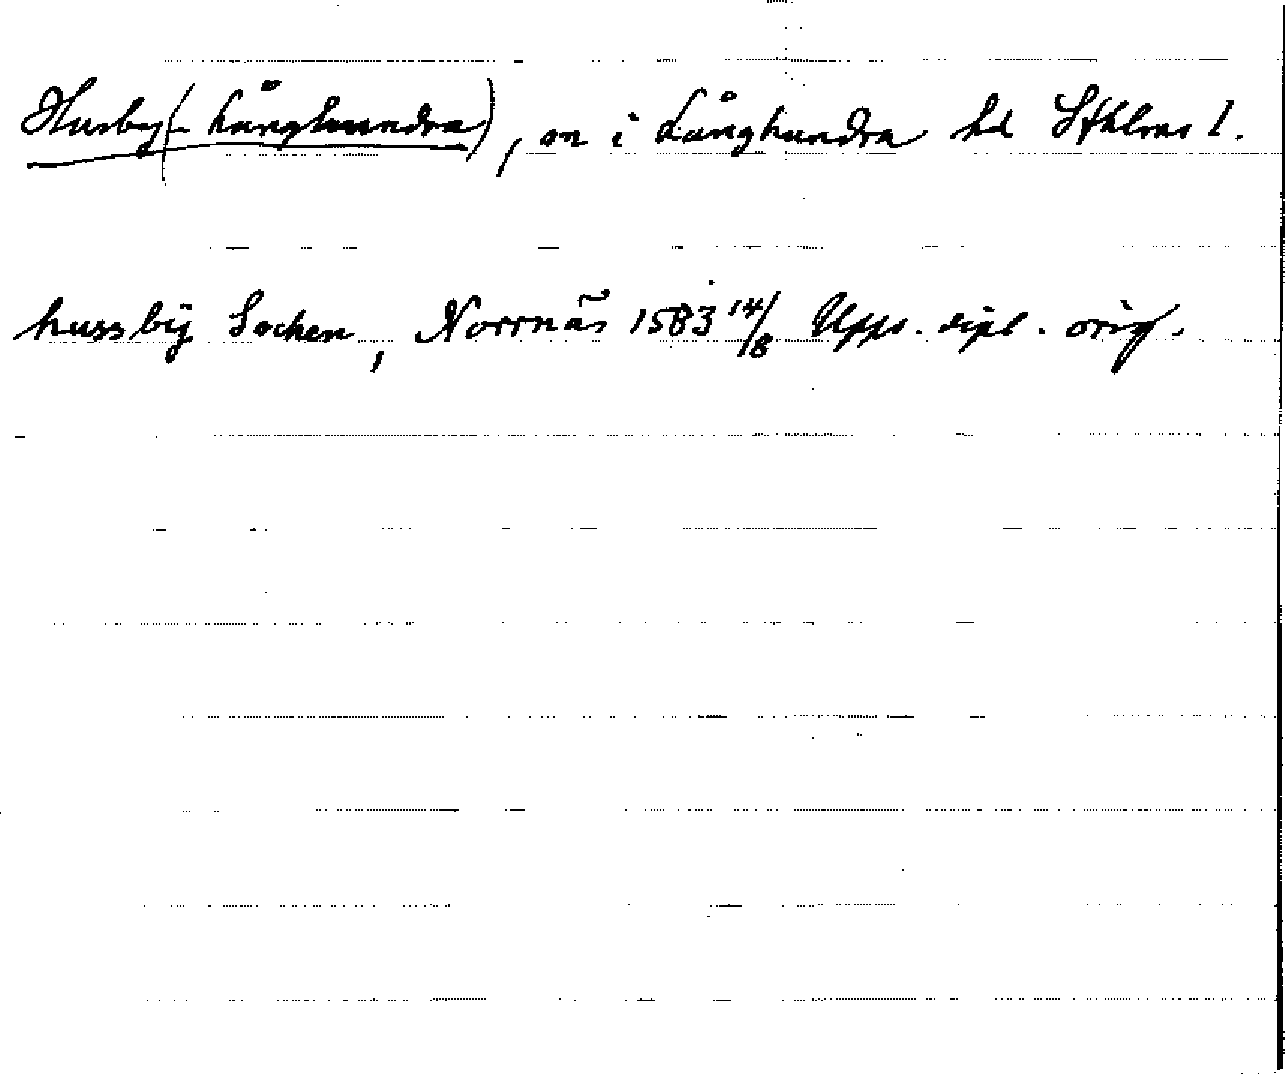 Husby(-Långhundra), sn i Långhundra hd Sthlms l.
hussbÿ Sochen, Norrnäs 1583 14/8 Upps. dipl. orig.